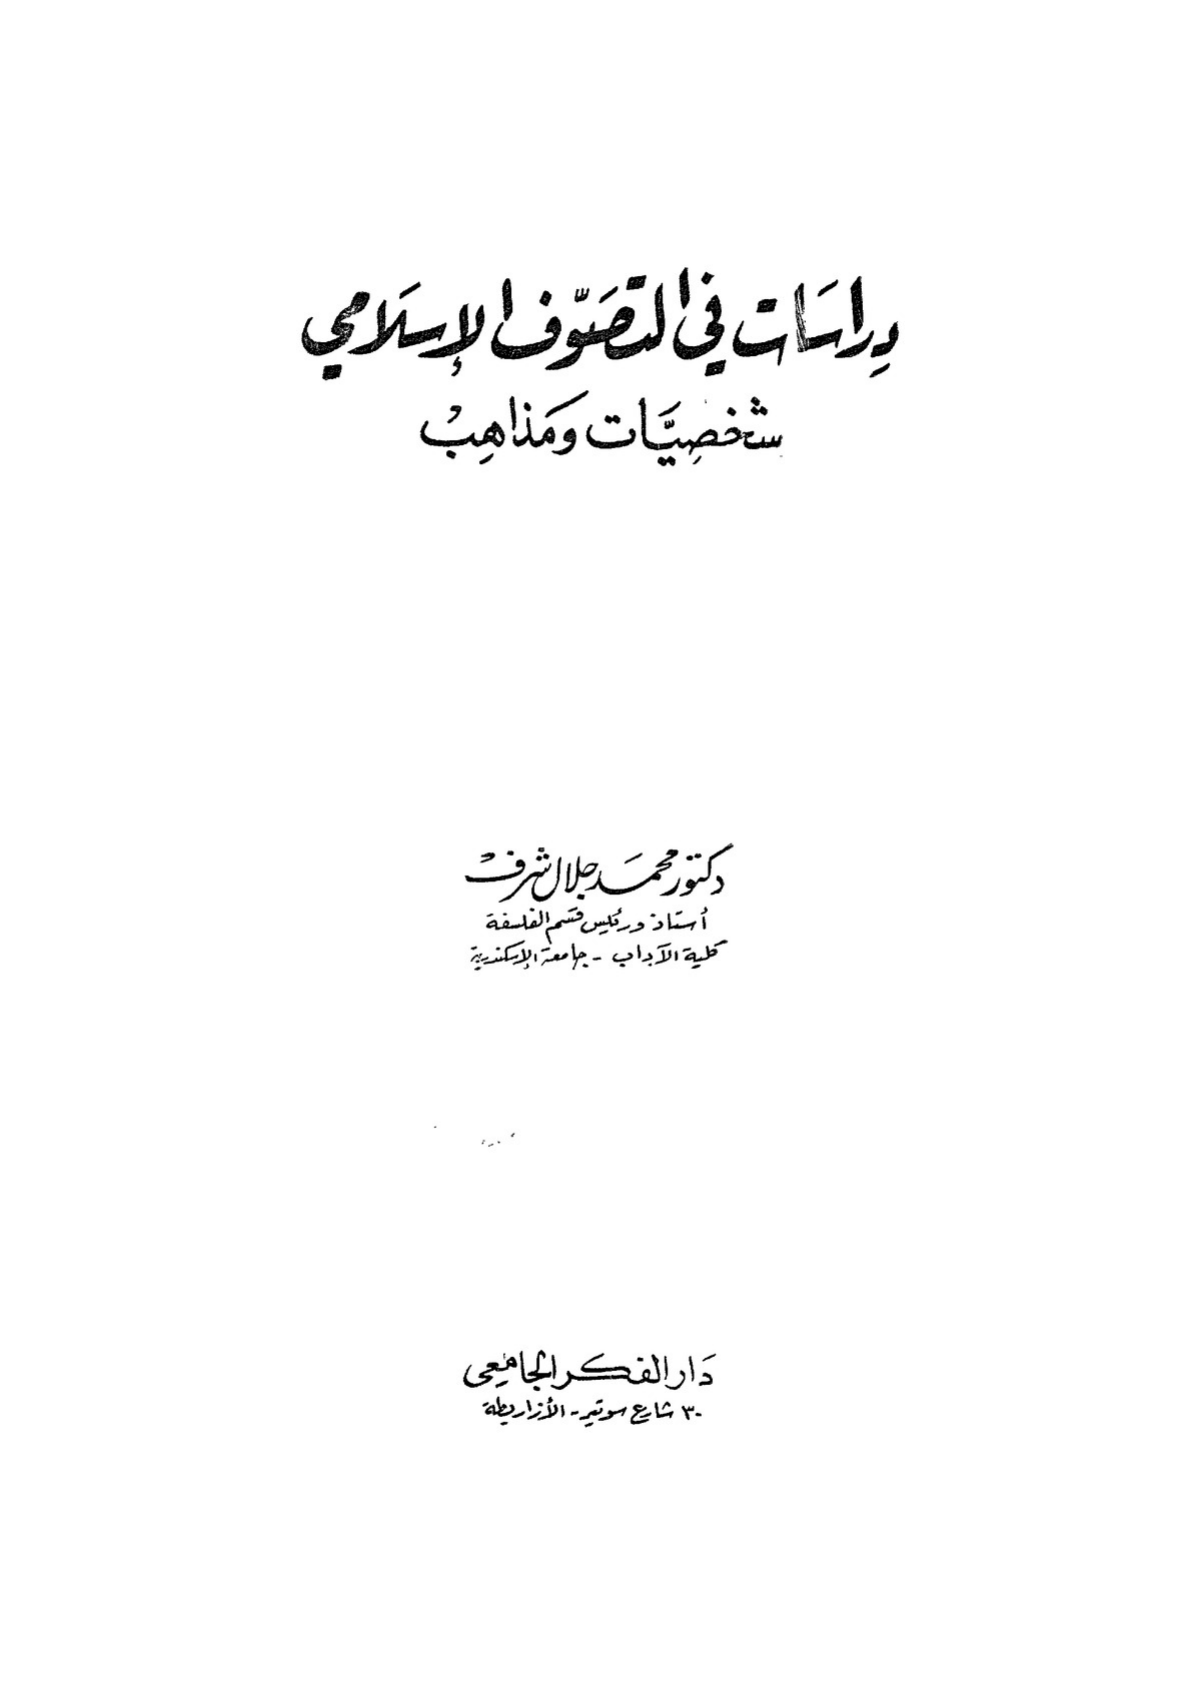 دِراسَات في التصَوّف الإسلامي
شخصِيَّات وَمَذاهِبْ
دكتور محمَد جلال شرف
أستاذ ورئيس قسم الفلسفة
كلية الآداب - جامعة الإسكندرية
دَار الفكر الجامِعى
٣٠ شارع سوتير - الأزاريطة